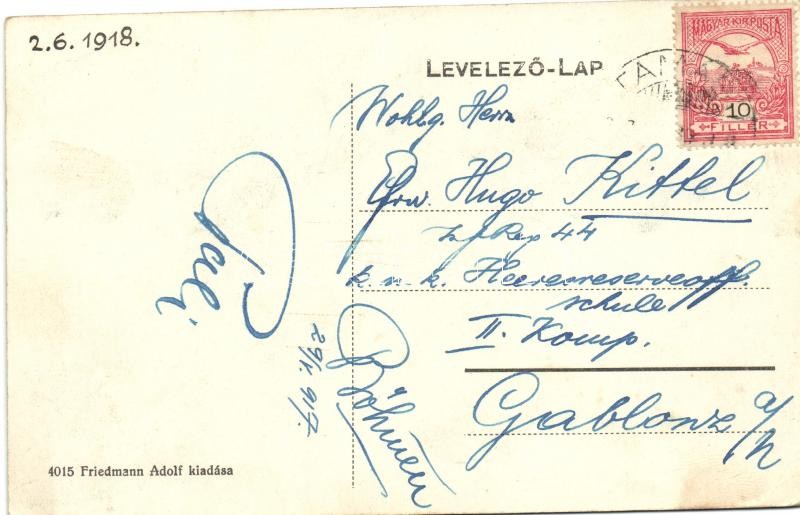 2.6.1918.
LEVELEZŐ-LAP
MAGYAR KIR. POSTA
10
FILLÉR
Wohlg. Herrn
Hugo Kittel
Rgp 44
k. u. k. Heeresreserveoff.
schule
II. Komp.
Gablonz a/N
Böhmen
Pali
4015 Friedmann Adolf kiadása